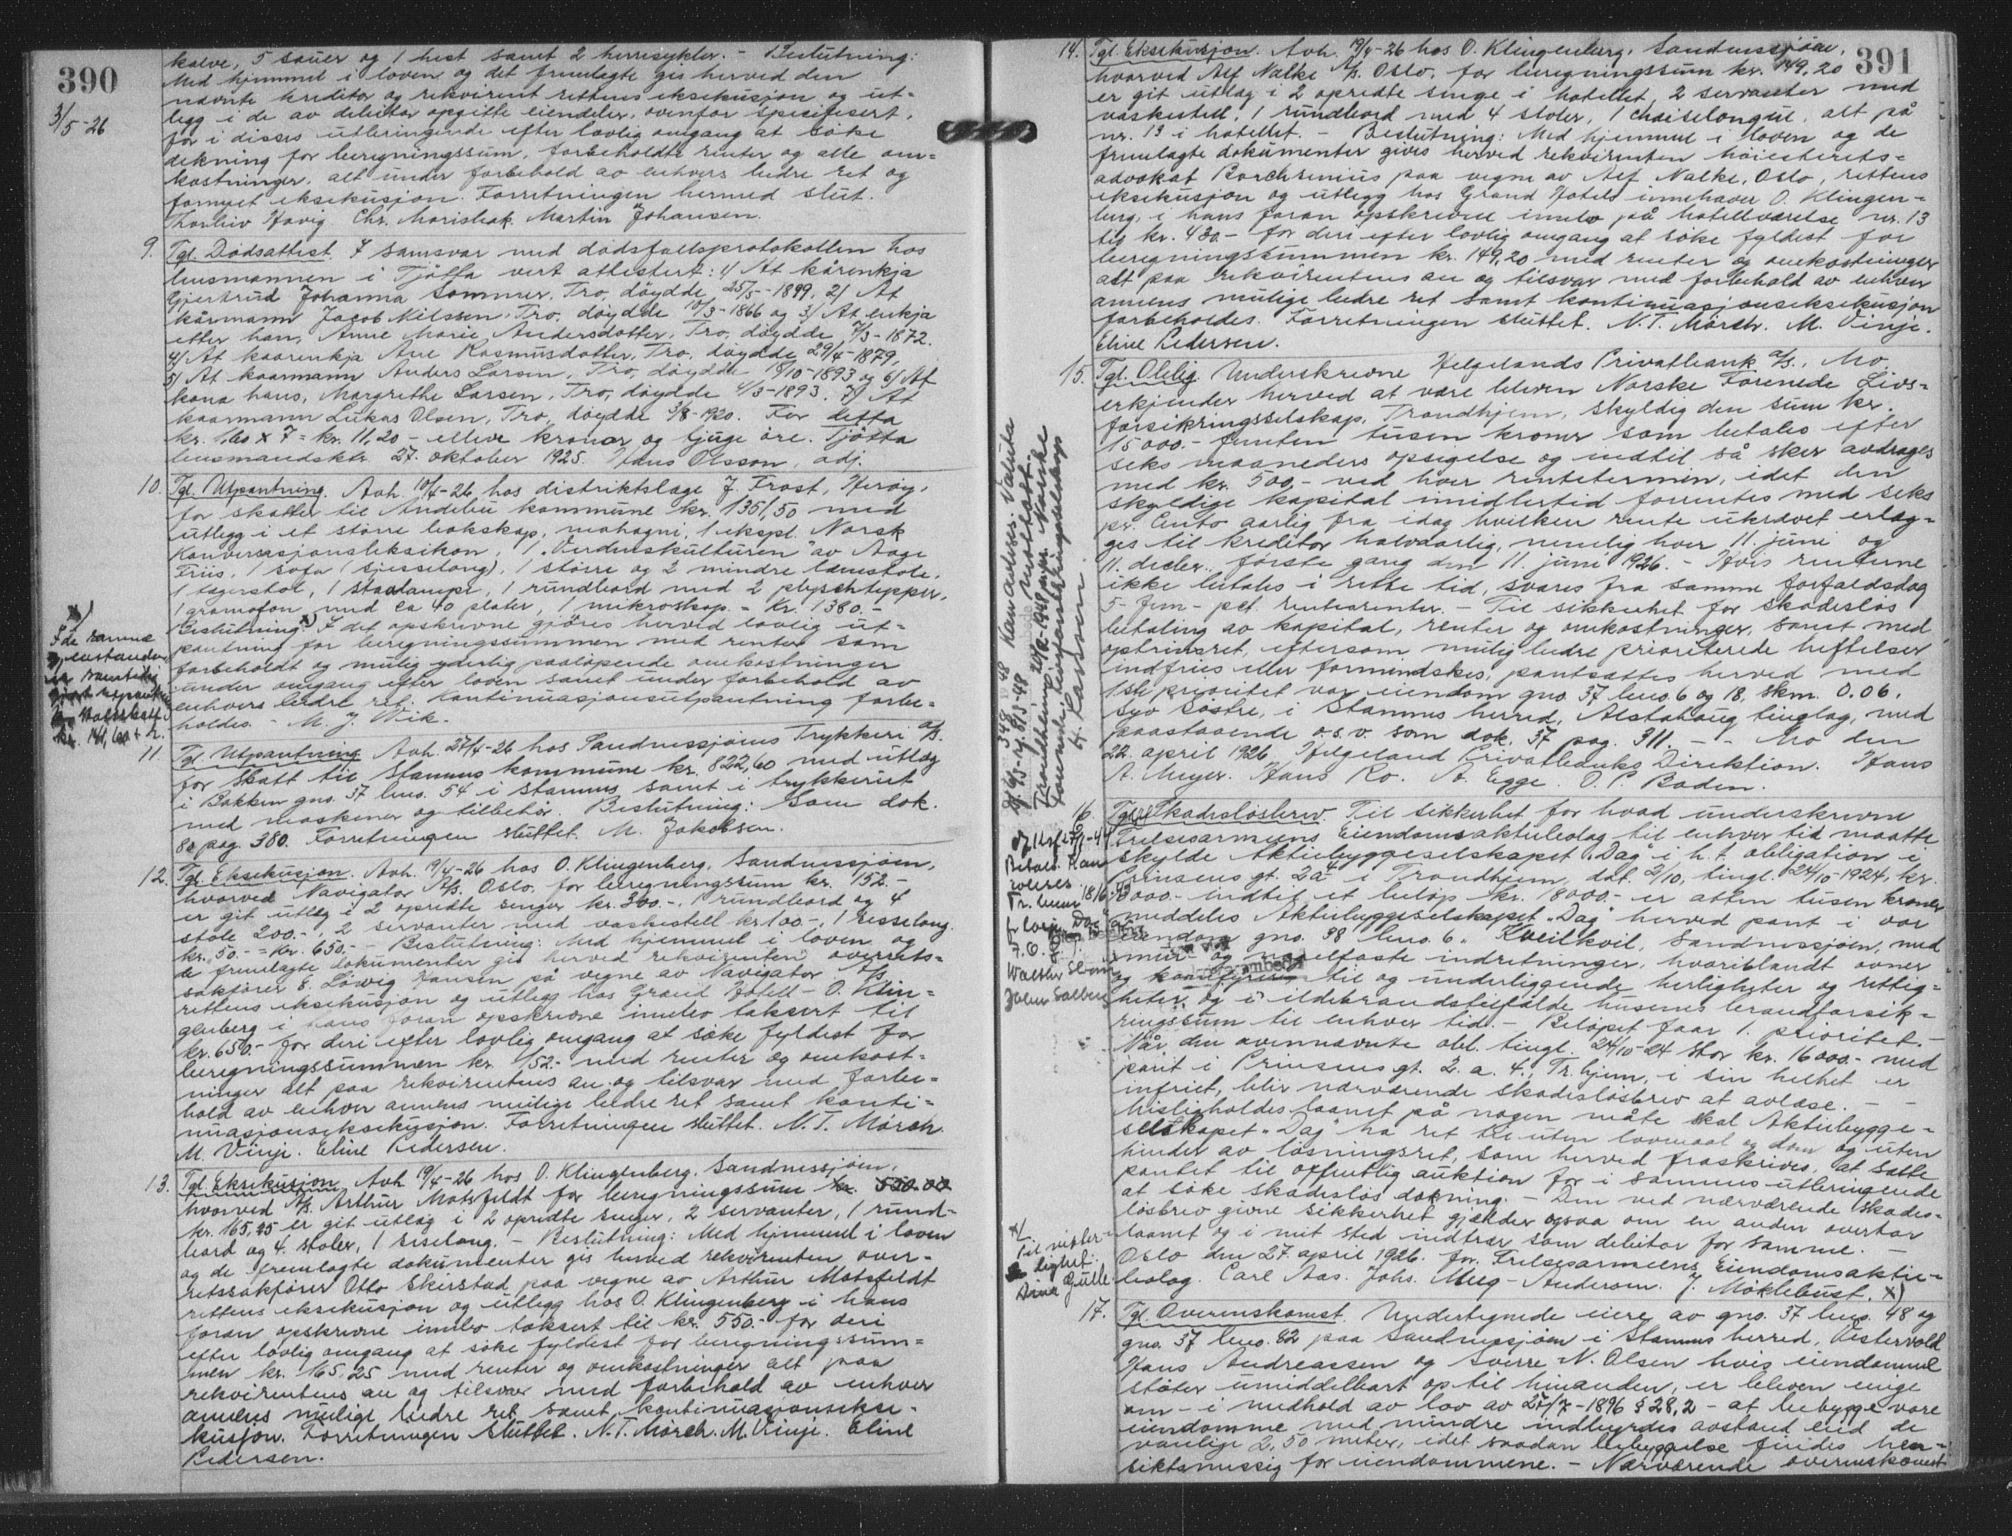 390
3/5-26
kalve, 5 sauer og 1 hest samt 2 herresykler. - Beslutning:
Med hjemmel i loven og det fremlagte gis herved den
nævnte kreditor og rekvirent rettens eksekusjon og ut-
legg i de av debitor opgitte eiendeler, ovenfor spesifisert,
for i disses utleringende efter lovlig omgang at söke
dekning for beregningssum, forbeholdte renter og alle om-
kostninger, alt under forbehold av enhvers bedre ret og
fornyet eksekusjon. Forretningen hermed slut.
Thorleiv Havig Chr. Marishak. Martin Johansen.
9. Tgl. Dødsattest. I samsvar med dødsfallsprotokollen hos
lensmannen i Tjötta vert attestert: 1/ At kårenkja
Gjertrud Johanna Sommer, Tro, döydde 25/5-1899, 2/ At
kårmann Jacob Nilssen, Tro, döydde 10/3-1866 og 3/ At enkja
etter han, Anne Marie Andersdotter, Tro, döydde 7/3-1872.
4/ At kaarenkja Ane Rasmusdotter, Tro, döydde 29/4-1879,
5/ At kaarmann Anders Larsen, Tro, döydde 18/10-1893 og 6/ At
kona hans, Margrethe Larsen, Tro, döydde 4/3-1893. 7/ At
kaarmann Lukas Olsen, Tro, döydde 5/8-1920. For detta
kr. 1,60 x 7 = kr. 11,20 - elleve kronor og tjuge öre. Tjötta
lensmandsktr. 27. oktober 1925. Hans Olsson, adj.
10. Tgl. Utpantning. Avh. 10/4-26 hos distriktslæge J. Frost, Heröy,
for skatter til Andebu kommune kr. 1351,50 med
utlegg i et större bokskap, mahogni, 1 ekspl. Norsk
Konversasjonsleksikon, 1 "Verdenskulturen" av Aage
Friis, 1 sofa (sjesselong), 1 större og 2 mindre lænestole,
1 lægerstol, 1 staalampe, 1 rundbord med 2 plyschtepper,
1 gramofon med ca 40 plater, 1 mikroskop. = Kr. 1380.-
Beslutning: x) I det opskrevne gjöres herved lovlig ut-
pantning for beregningssummen med renter som
forbeholdt og mulig yderlig paalöpende omkostninger
under omgang efter loven samt under forbehold av
enhvers bedre ret. Kontinuasjonsutpantning forbe-
holdes. - M. J. Wiik.-
x)
I de samme
gjenstander
er samtidig
gjort utpantn.
for
kr. 141,60 +
11. Tgl. Utpantning Avh. 27/4-26 hos Sandnessjöens Trykkeri A/S.
for skatt til Stamnes kommune kr. 822,60 med utlæg
i Bakken gno. 37 bno. 54 i Stamnes samt i trykkeriet
med maskiner og tilbehör. Beslutning: Som dok.
8a pag. 380. Forretningen sluttet. M. Jakobsen.
12. Tgl. Eksekusjon. Avh. 19/4-26 hos O. Klingenberg, Sandnessjöen,
hvorved Navigator A/S. Oslo, for beregningssum kr. 152.-
er git utlæg i 2 opredte senger kr. 300.-, 1 rundbord og 4
stole 200.-, 2 servanter med vaskestell kr. 100.-, 1 sesselong.
kr. 50.- = kr. 650.- - Beslutning: Med hjemmel i loven og
de fremlagte dokumenter gis herved rekvirenten, overrets-
sakförer E. Lövig Hansen på vegne av Navigator A/S
rettens eksekusjon og utlegg hos Grand Hotell - O. Klin-
genberg i hans foran opskrevne innbo taksert til
kr. 650.- for deri efter lovlig omgang at söke fyldest for
beregningssummen kr. 152.- med renter og omkost-
ninger alt paa rekvirentens an- og tilsvar med forbe-
hold av enhver annens mulige bedre ret samt konti-
nuasjonseksekusjon. Forretningen sluttet. N. T. Mörch.
M. Vinje. Eline Pedersen.
13. Tgl. Eksekusjon Avh. 19/4-26 hos O. Klingenberg, Sandnessjöen,
hvorved A/S. Arthur Motsfeldt for beregningssum kr. 550.00
kr. 165,25 er git utlæg i 2 opredte senger, 2 servanter, 1 rund-
bord og 4. stoler, 1 seselong. - Beslutning: Med hjemmel i loven
og de fremlagte dokumenter gis herved rekvirenten over-
retssakförer Otto Skirstad paa vegne av Arthur Motsfeldt
rettens eksekusjon og utlegg hos O. Klingenberg i hans
foran opskrevne innbo taksert til kr. 550.- for deri
efter lovlig omgang at söke fyldest for beregningssum-
men kr. 165,25 med renter og omkostninger alt paa
rekvirentens an og tilsvar med forbehold av enhver
annens mulige bedre ret samt kontinuasjonsekse-
kusjon. Forretningen sluttet. N. T. Mörch. M. Vinje. Eline
Pedersen.
391
14. Tgl. Eksekusjon. Avh. 19/4-26 hos O. Klingenberg, Sandnessjöen,
hvorved Alf Nalke A/S. Oslo, for beregningssum kr. 149,20
er git utlæg i 2 opredte senge i hotellet, 2 servanter med
vaskestell, 1 rundbord med 4 stoler, 1 chaiselongue, alt på
nr. 13 i hotellet. - Beslutning: Med hjemmel i loven og de
fremlagte dokumenter gives herved rekvirenten höiesterets-
advokat Borchrenius paa vegne av Alf Nalke, Oslo, rettens
eksekusjon og utlegg hos Grand Hotels innehaver O. Klingen-
berg, i hans foran opskrevne innbo på hotellværelse nr. 13
tils. kr. 430.- for deri efter lovlig omgang at söke fyldest for
beregningssummen kr. 149,20 med renter og omkostninger
alt paa rekvirentens an og tilsvar med forbehold av enhver
annens mulige bedre ret samt kontinuasjonseksekusjon
forbeholdes. Forretningen sluttet. N. T. Mörch. M. Vinje.
Eline Pedersen.
15. Tgl. Oblig. Underskrevne Helgelands Privatbank A/S., Mo,
erkjender herved at være bleven Norske Forenede Livs-
forsikringsselskap, Trondhjem, skyldig den sum kr.
15000.- femten tusen kroner som betales efter
seks maaneders opsigelse og indtil så sker avdrages
med kr. 500.- ved hver rentetermin, idet den
skyldige kapital imidlertid forrentes med seks
pr. Cento aarlig fra idag hvilken rente ukrævet erlæg-
ges til kreditor halvaarlig, nemlig hver 11. juni og
11. decbr., förste gang den 11. juni 1926. - Hvis renterne
ikke betales i rette tid, svares fra samme forfaldsdag
5- fem - pct. renterenter. - Til sikkerhet for skadeslös
betaling av kapital, renter og omkostninger, samt med
optrinsret, eftersom mulig bedre prioriterede heftelser
indfries eller formindskes, pantsættes herved med
1ste prioritet vor eiendom gno. 37 bno. 6 og 18, skm. 0.06.
Syv Söstre, i Stamnes herred, Alstahaug tinglag, med
paastaaende o.s.v. som dok. 37 pag. 311. - - Mo den
22. april 1926. Helgeland Privatbanks Direktion. Hans
A. Meyer. Hans Ro. A. Egge. O. P. Boden.
348 48 Kan avleses. Valuta
mottatt.
Trondheim, 20/2-1948 for Norske
Forenede Livsforsikringsselskap
H. Larsen.
16. Tgl. Skadeslösbrev. Til sikkerhet for hvad underskrevne
Frelsesarmeens Eiendomsaktiebolag til enhver tid maatte
skylde Aktiebyggeselskapet "Dag" i h.t. obligation i
Prinsens gt. 2a 4 i Trondhjem, dat. 2/10, tingl. 24/10-1924, kr.
18000.- indtil et belöp kr. 18000.- er atten tusen kroner
meddeles Aktiebyggeselskapet "Dag" herved pant i vor
eiendom gno. 38 bno. 6. Kveilkvil, Sandnessjöen, med
mur- og nagelfaste indretninger, hvoriblandt ovner
og komfyrer til og underliggende herligheter og rettig-
heter, og i ildebrandstilfælde husenes brandforsik-
ringssum til enhver tid. - Belöpet faar 1. prioritet. -
Når den ovennævnte obl. tingl. 24/10-24 stor kr. 16000.- med
pant i Prinsens gt. 2. a. 4., Tr.hjem, i sin helhet er
infriet, blir nærværende skadeslösbrev at avlæse. - -
Misligholdes laanet på nogen måte skal Aktiebygge-
selskapet "Dag" ha ret til uten lovmaal og dom og uten
hinder av lösningsret, som herved fraskrives, at sætte
pantet til offentlig auktion for i sammes utbringende
at söke skadeslös dækning. - Den ved nærværende skades-
lösbrev givne sikkerhet gjælder ogsaa om en anden overtar
laanet og i mit sted indtrær som debitor for samme. -
Oslo den 27. april 1926. for Frelsesarmeens Eiendomsaktie-
bolag. Carl Aas. Johs. Myg-Anderson. J. Möklebust. x)
x)
Til vitter-
lighet:
Gulle
17. Tgl. Overenskomst. Undertegnede eiere av gno. 37 bno. 48 og
gno. 37 bno. 82 paa Sandnessjöen i Stamnes herred, Vestervold
Hans Andreassen og Sverre N. Olsen hvis eiendomme
stöter umiddelbart op til hinanden, er bleven enige
om - i medhold av lov av 27/7-1896 § 28,2 - at bebygge vore
eiendomme med mindre indbyrdes avstand end de
vanlige 2,50 meter, idet saadan bebyggelse findes hen-
siktsmessig for eiendommene. - Nærværende overenskomst